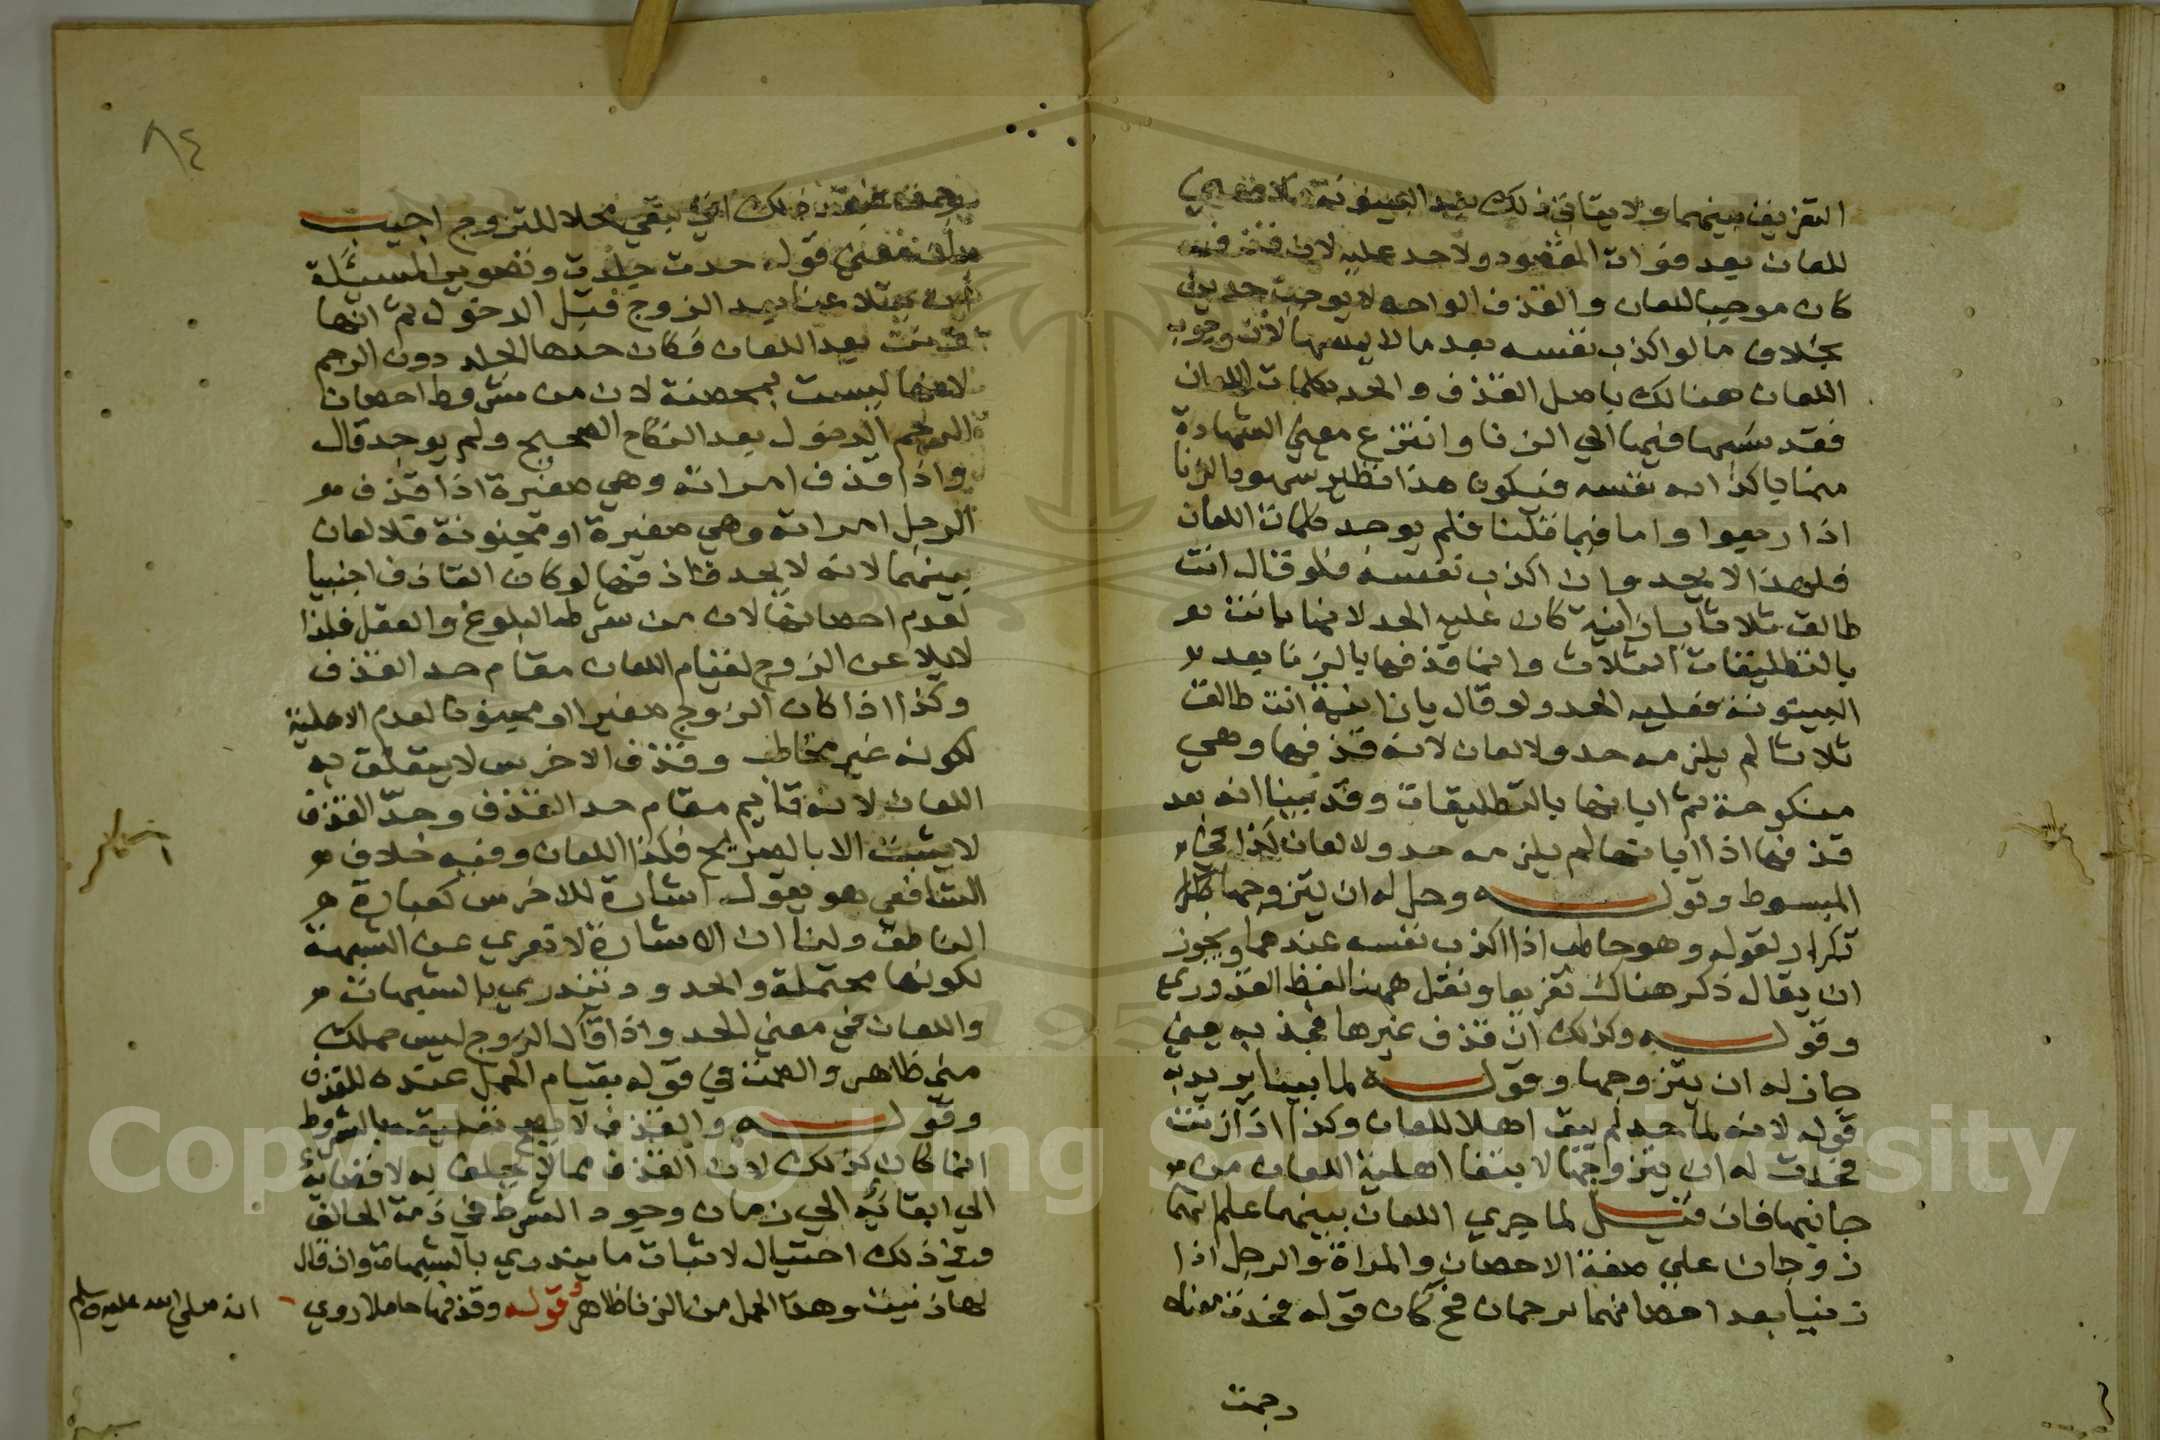 التفريق بينهما ولا يتأتى ذلك بعد البينونة فلا معنى
للعان بعد فوات المقصود ولا حد عليه لان قذفه
كان موجبا للعان والقذف الواحد لا يوجب حدين
بخلاف ما لو اكذب نفسه بعد ما لا عنها لان وجوب
اللعان هنالك باصل القذف والحد بكلمات اللعان
فقد نسبها فيها الي الزنا وانتزع معني الشهادة
منها باكذابه نفسه فيكون هذا نظير شهود الزنا
اذا رجعوا واما فيما قلنا فلم يوجد كلمات اللعان
فلهذا لا يحد وان اكذب نفسه فلو قال انت
طالق ثلاثا يا زانية كان عليه الحد لانها بانت
بالتطليقات الثلاث وانما قذفها بالزنا بعد
البينونة فعليه الحد ولو قال يا زانية انت طالق
ثلاثا لم يلزمه حد ولا لعان لانه قذفها وهي
منكوحة ثم ابانها بالتطليقات وقد بينا انه بعد
قذفها اذا ابانها لم يلزمه حد ولا لعان كذا في
المبسوط وقوله وحل له ان يتزوجها
تكرار لقوله وهو خاطب اذا اكذب نفسه عندهما ويجوز
ان يقال ذكر هناك تفريعا ونقل ههنا لفظ القدوري
وقوله وكذلك ان قذف غيرها فحد به يعني
جاز له ان يتزوجها وقوله لما بينا يريد به
قوله لانه لما حد لم يبق اهلا للعان وكذا اذا زنت
فحدت له ان يتزوجها لانتفا اهلية اللعان من
جانبها فان قيل لما جري اللعان بينهما علم انهما
زوجان علي صفة الاحصان والمراة والرجل اذا
زنيا بعد احصانهما يرجمان فح كان قوله فحدت معناه
رجمت
٨٤
رجمت فبعد ذلك اني يبقي محلا للتزوج اجيب
بان معني قوله حدت جلدت وتصوير المسئلة
ان يتلاعنا بعد التزوج قبل الدخول ثم انها
زنت بعد اللعان فكان حدها الجلد دون الرجم
لانها ليست بمحصنة لان من شروط احصان
الرجم الدخول بعد النكاح الصحيح ولم يوجد قال
واذا قذف امراته وهي صغيرة اذا قذف
الرجل امراته وهي صغيرة او مجنونة فلا لعان
بينهما لانه لا يحد قاذفها لو كان القاذف اجنبيا
لعدم احصانها لان من شرطه البلوغ والعقل فلذا
لا يلاعن الزوج لقيام اللعان مقام حد القذف
وكذا اذا كان الزوج صغيرا او مجنونا لعدم الاهلية
لكونه غير مخاطب وقذف الاخرس لا يتعلق به
اللعان لانه قايم مقام حد القذف وحد القذف
لا يثبت الا بالصريح فكذا اللعان وفيه خلاف
الشافعي هو يقول اشارة للاخرس كعبارة
الناطق ولنا ان الاشارة لا تعري عن الشبهة
لكونها محتملة والحدود تندري بالشبهات
واللعان في معني الحد واذا قال الزوج ليس حملك
مني ظاهر والصمت في قوله بقيام الحمل عنده للقذف
وقوله والقذف لا يصح تعليقه بالشروط
انما كان كذلك لان القذف مما لا يحلف به لافضائه
الي ابقائه الي زمان وجود الشرط في ذمة الحالف
وفي ذلك احتيال لاثبات ما يندري بالشبهات وان قال
لها زنيت وهذا الحمل من الزنا ظاهر قوله وقذفها حاملا روي
انه صلي الله عليه وسلم